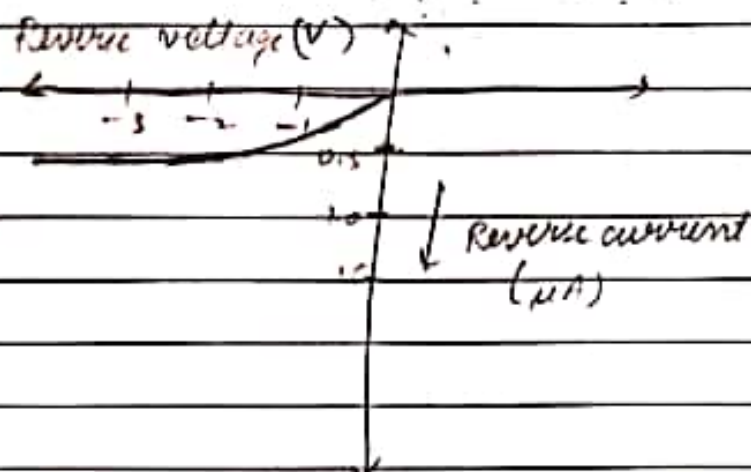 Reverse voltage (V)
-3 -2 -1
0.5
1.0
1.5
Reverse current
(μA)